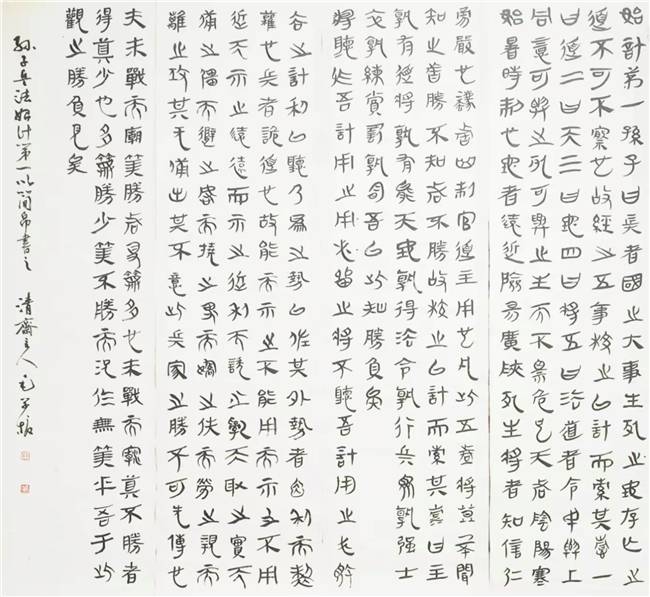 始計第一孫子曰兵者國之大事生死之地存亡之
道不可不察也故經之五事校之以計而索其情一
曰道二曰天三曰地四曰將五曰法道者令民與上
同意可與之死可與之生而不畏危也天者陰陽寒
暑時制也地者遠近險易廣狹死生將者知信仁
勇嚴也法者曲制官道主用也凡此五者將莫不聞
知之者勝不知者不勝故校之以計而索其情曰主
孰有道將孰有能天地孰得法令孰行兵眾孰強士
卒孰練賞罰孰明吾以此知勝負矣
將聽吾計用之必勝留之將不聽吾計用之必敗
去之計利以聽乃為之勢以佐其外勢者因利而制
權也兵者詭道也故能而示之不能用而示之不用
近而示之遠遠而示之近利而誘之亂而取之實而
備之強而避之怒而撓之卑而驕之佚而勞之親而
離之攻其無備出其不意此兵家之勝不可先傳也
夫未戰而廟算勝者得算多也未戰而廟算不勝者
得算少也多算勝少算不勝而況於無算乎吾于此
觀之勝負見矣
孫子兵法始計第一以簡帛書之 清齋主人